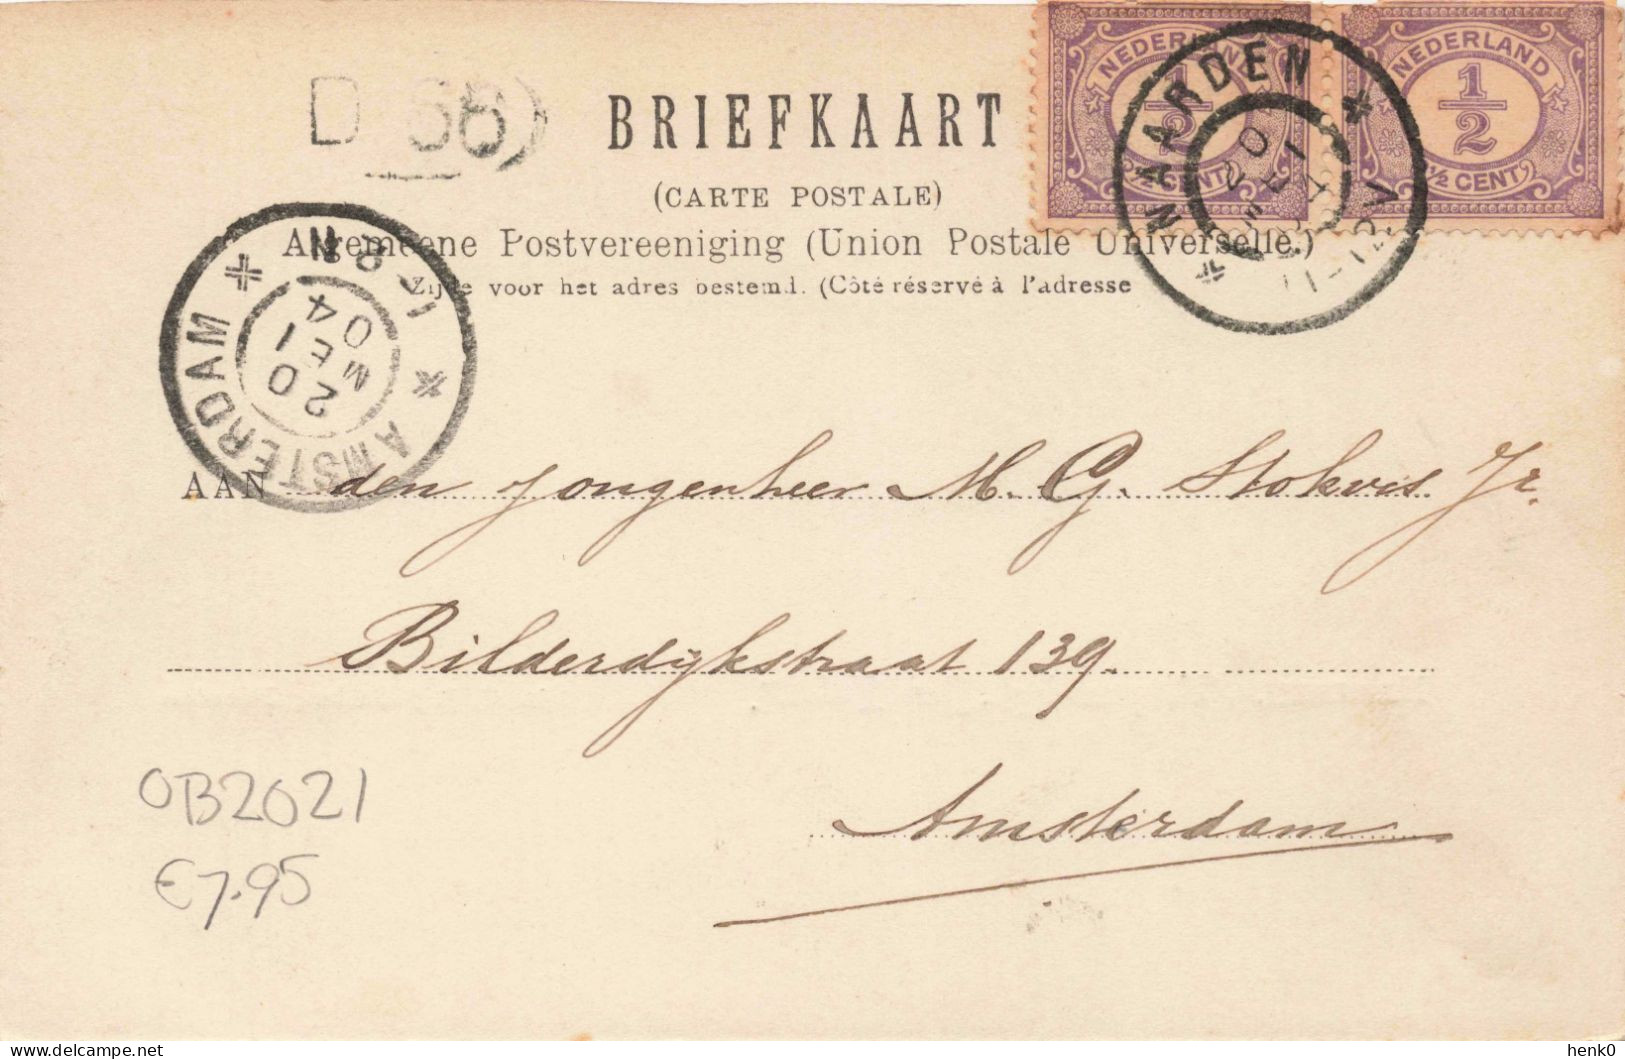 D 56)
BRIEFKAART
(CARTE POSTALE)
Algemeene Postvereeniging (Union Postale Universelle.)
Zijde voor het adres bestemd. (Côté réservé à l'adresse
NEDERLAND
1/2
½ CENT
NEDERLAND
1/2
½ CENT
NAARDEN
20
11-12V
AMSTERDAM
20 MEI 04
1-2 N
AAN den jongenheer M. G. Stokvis Jr.
Bilderdijkstraat 139.
Amsterdam
OB2021
€7.95
henk0